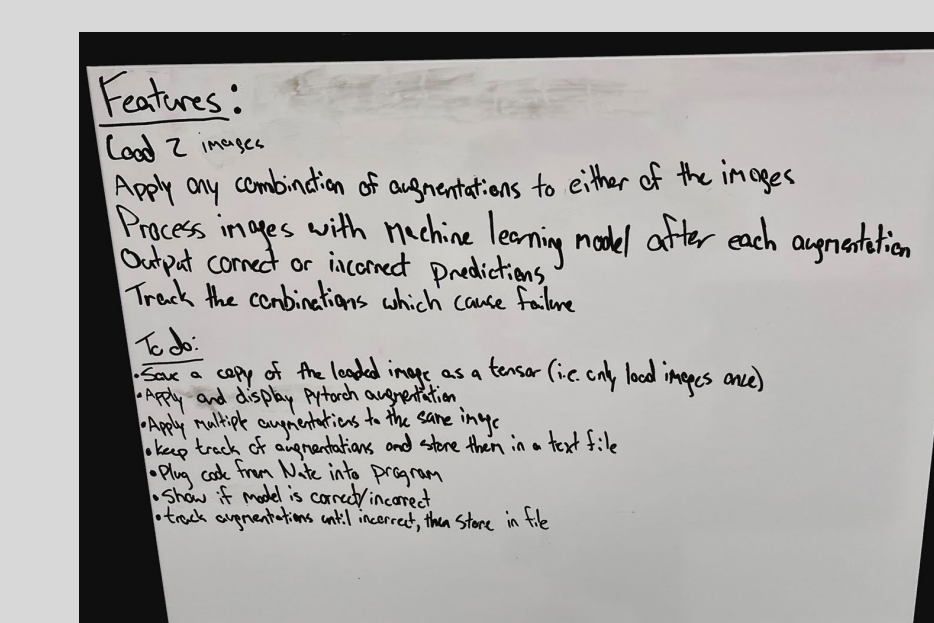 Features:
Load 2 images
Apply any combination of augmentations to either of the images
Process images with Machine learning model after each augmentation
Output correct or incorrect predictions
Track the combinations which cause failure
To do:
•Save a copy of the loaded image as a tensor (i.e. only load images once)
•Apply and display Pytorch augmentation
•Apply multiple augmentations to the same image
•keep track of augmentations and store them in a text file
•Plug code from Nate into program
•Show if model is correct/incorrect
•track augmentations until incorrect, then store in file